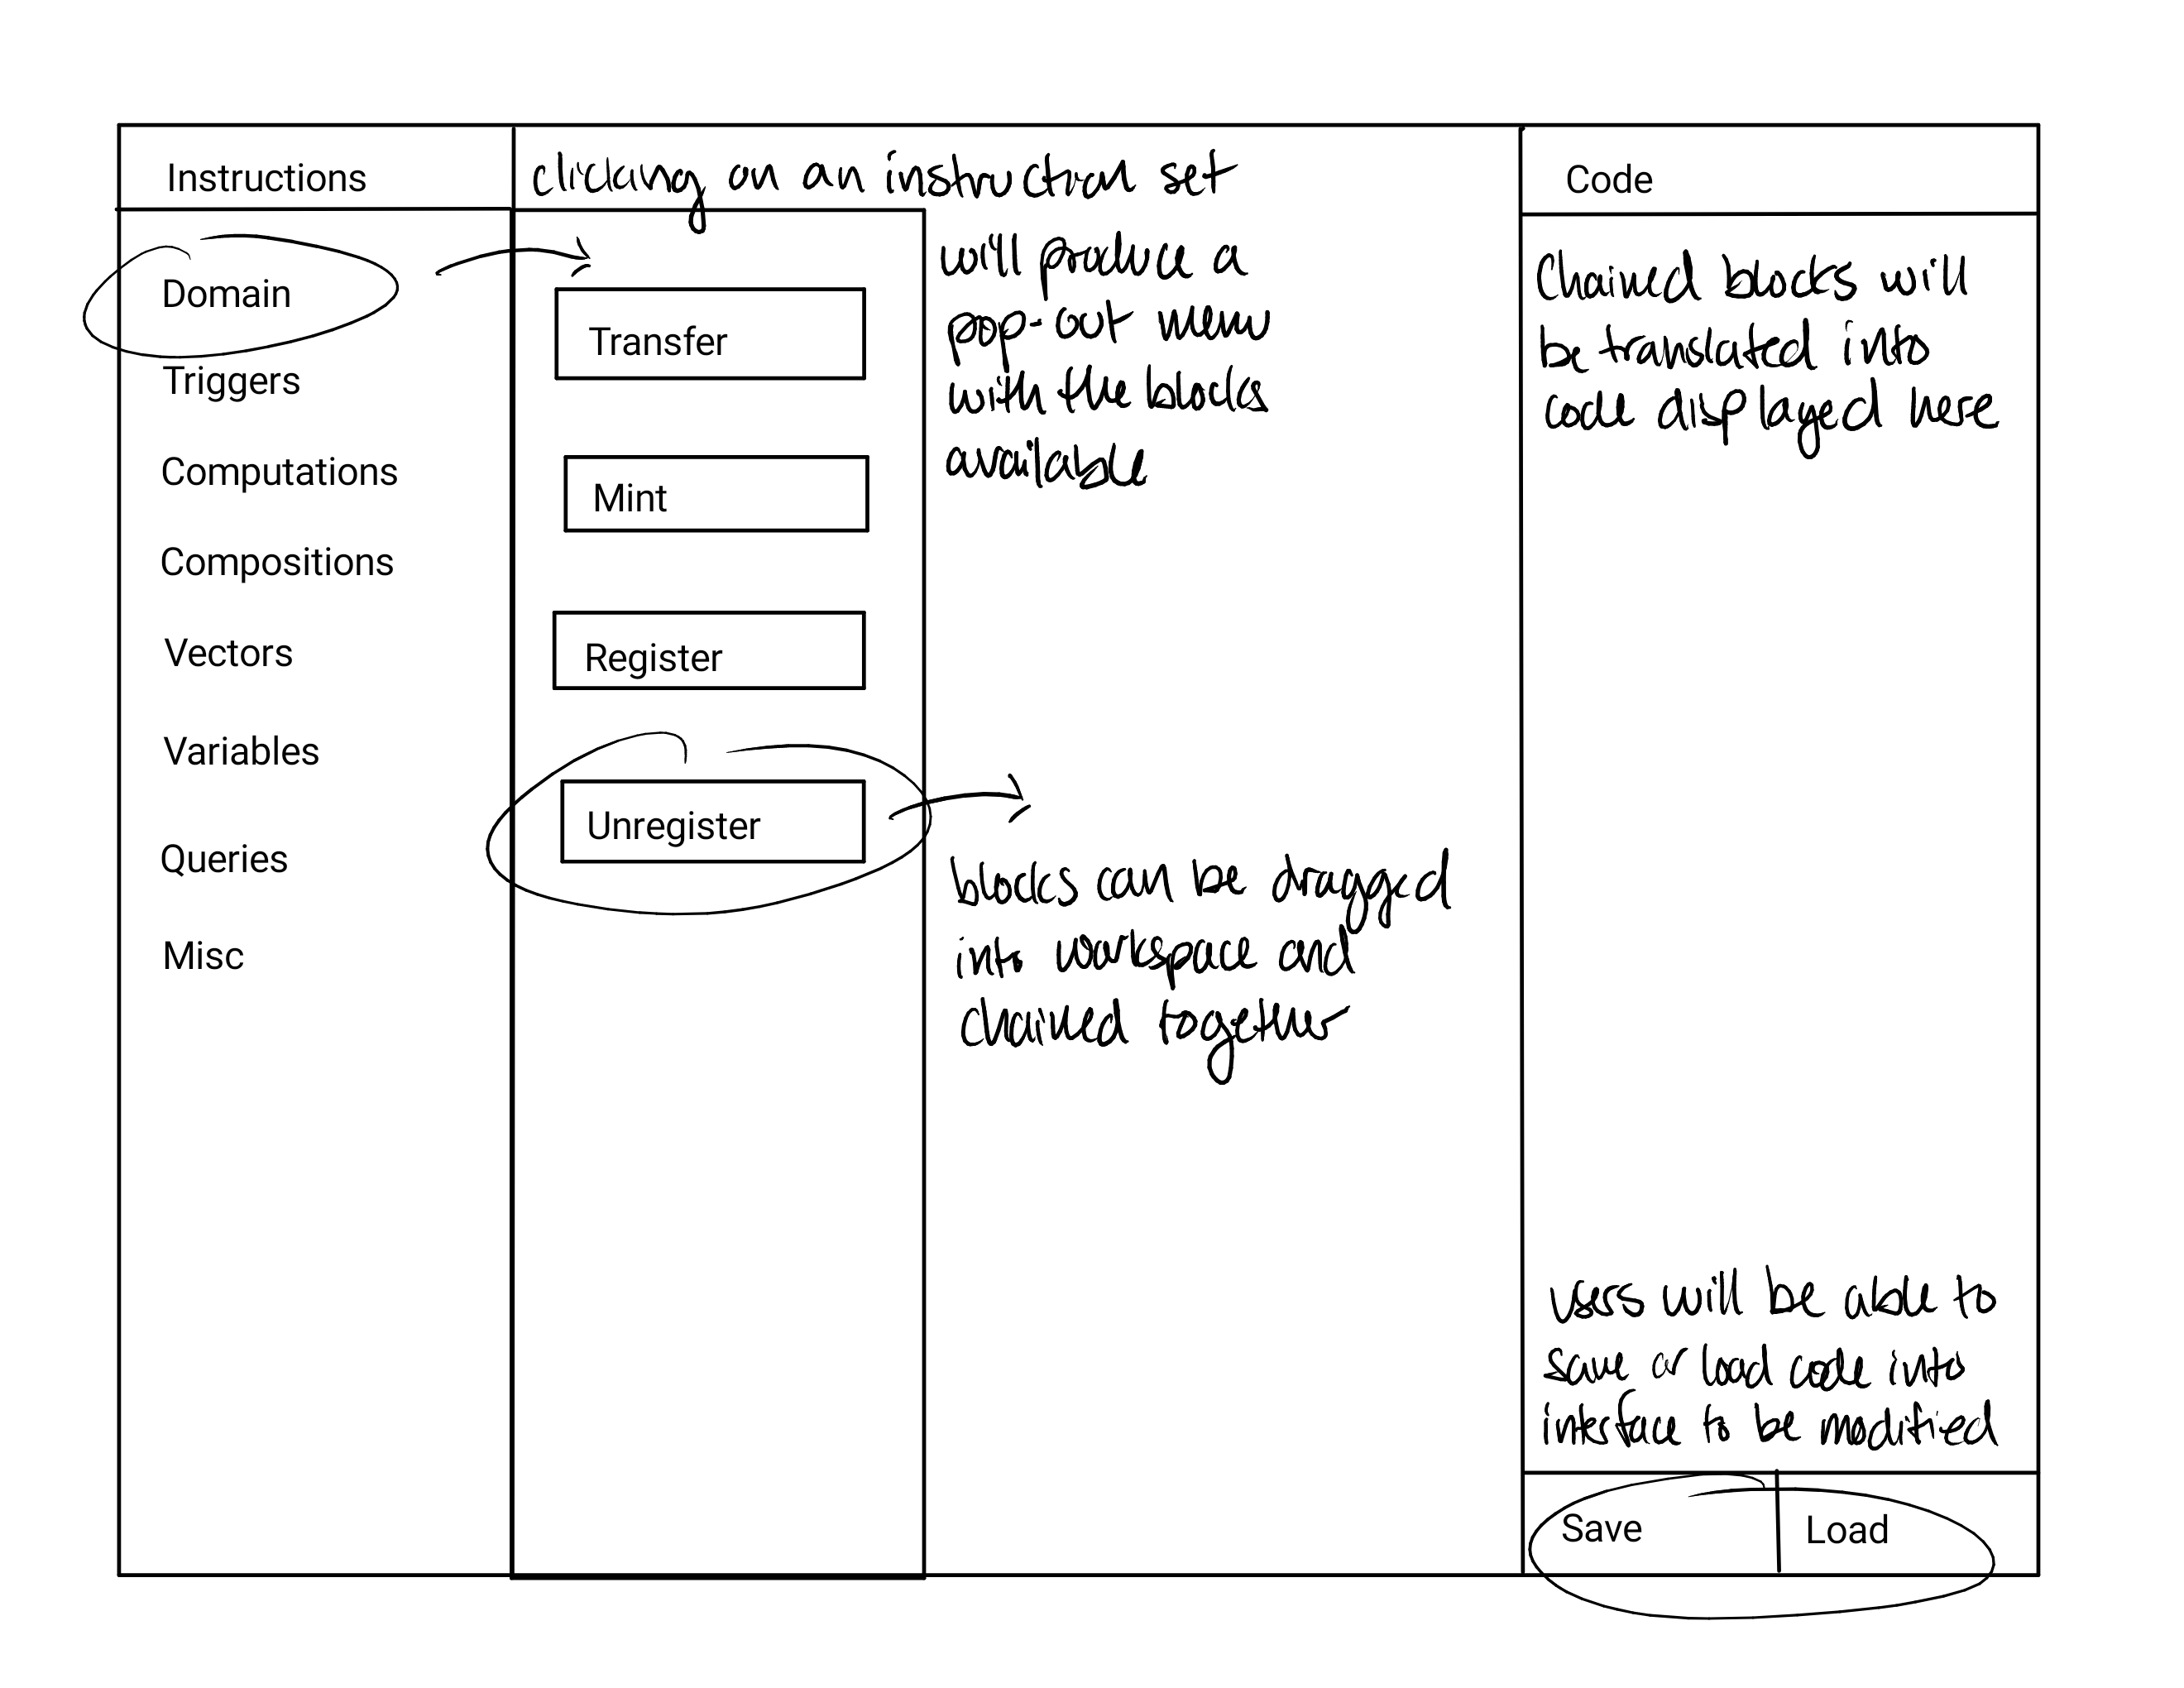 Instructions
Domain
Triggers
Computations
Compositions
Vectors
Variables
Queries
Misc
clicking on an instruction set
will produce a
pop-out menu
with the blocks
available
Transfer
Mint
Register
Unregister
blocks can be dragged
into workspace and
chained together
Code
Chained blocks will
be translated into
code displayed here
users will be able to
save or load code into
interface to be modified
Save
Load